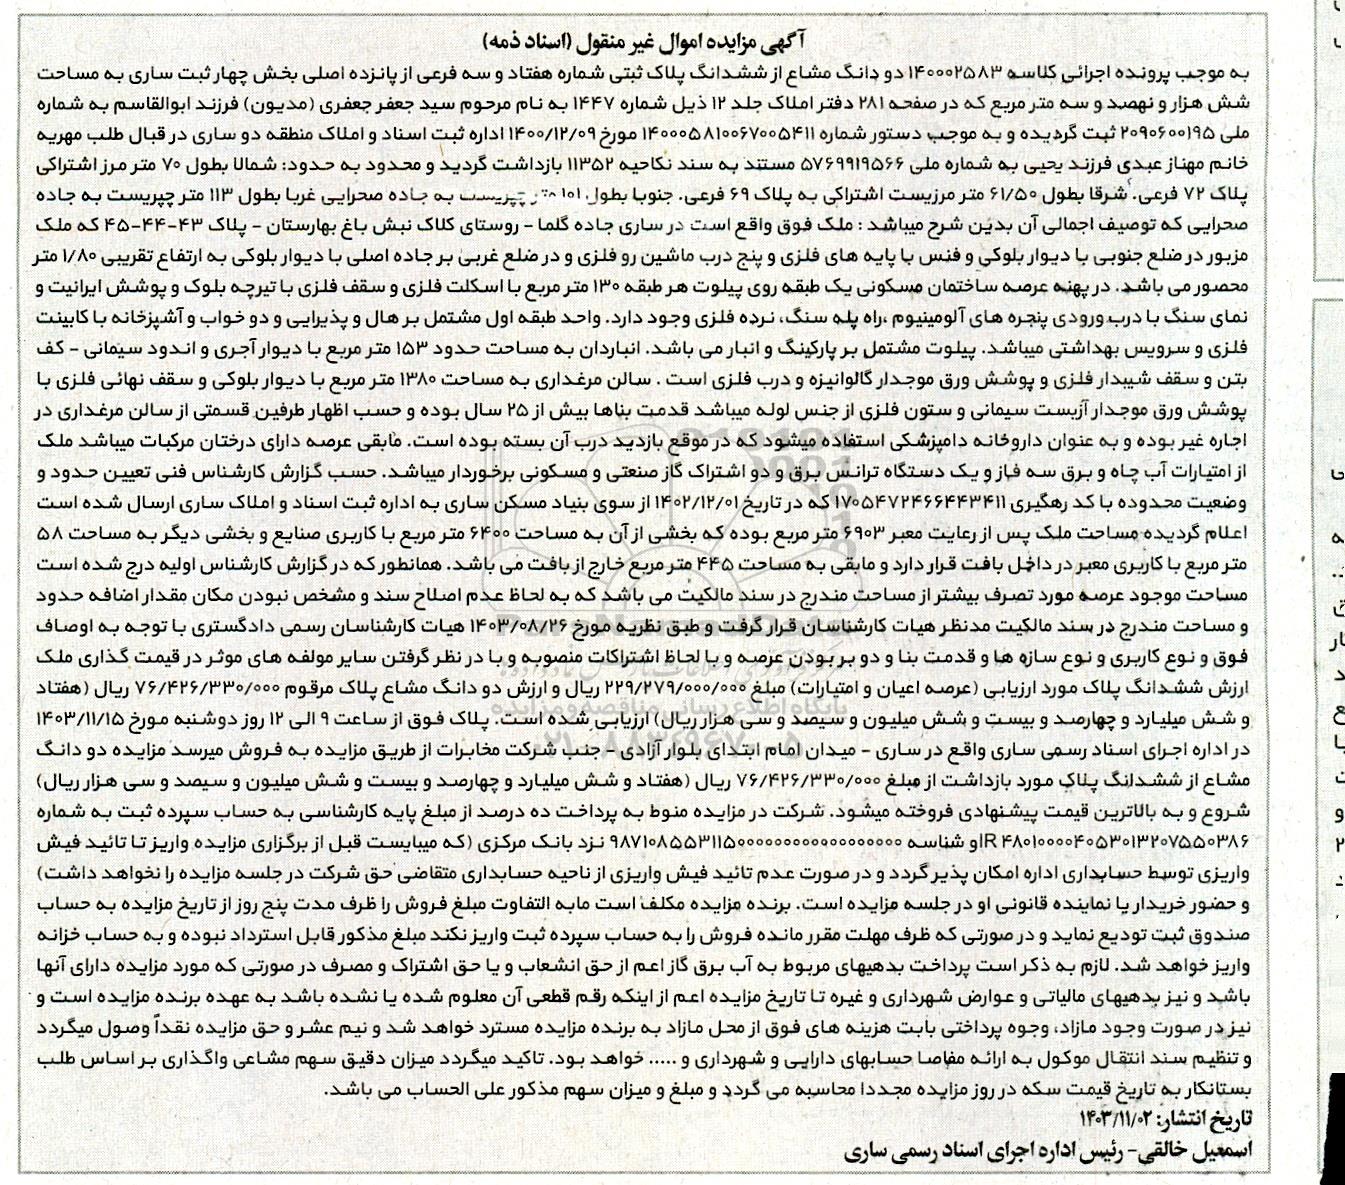 آگهی مزایده اموال غیر منقول (اسناد ذمه)
به موجب پرونده اجرائی کلاسه ۱۴۰۰۰۲۵۸۳ دو دانگ مشاع از ششدانگ پلاک ثبتی شماره هفتاد و سه فرعی از پانزده اصلی بخش چهار ثبت ساری به مساحت
شش هزار و نهصد و سه متر مربع که در صفحه ۲۸۱ دفتر املاک جلد ۱۲ ذیل شماره ۱۴۴۷ به نام مرحوم سید جعفر جعفری (مدیون) فرزند ابوالقاسم به شماره
ملی ۲۰۹۰۶۰۰۱۹۵ ثبت گردیده و به موجب دستور شماره ۱۴۰۰۰۵۸۱۰۰۶۷۰۰۵۴۱۱ مورخ ۱۴۰۰/۱۲/۰۹ اداره ثبت اسناد و املاک منطقه دو ساری در قبال طلب مهریه
خانم مهناز عبدی فرزند یحیی به شماره ملی ۵۷۶۹۹۱۹۵۶۶ مستند به سند نکاحیه ۱۱۳۵۲ بازداشت گردید و محدود به حدود: شمالا بطول ۷۰ متر مرز اشتراکی
پلاک ۷۲ فرعی. شرقا بطول ۶۱/۵۰ متر مرزیست اشتراکی به پلاک ۶۹ فرعی. جنوبا بطول ۱۰۱ متر چپریست به جاده صحرایی غربا بطول ۱۱۳ متر چپریست به جاده
صحرایی که توصیف اجمالی آن بدین شرح میباشد : ملک فوق واقع است در ساری جاده گلما - روستای کلاک نبش باغ بهارستان - پلاک ۴۳-۴۴-۴۵ که ملک
مزبور در ضلع جنوبی با دیوار بلوکی و فنس با پایه های فلزی و پنج درب ماشین رو فلزی و در ضلع غربی بر جاده اصلی با دیوار بلوکی به ارتفاع تقریبی ۱/۸۰ متر
محصور می باشد. در پهنه عرصه ساختمان مسکونی یک طبقه روی پیلوت هر طبقه ۱۳۰ متر مربع با اسکلت فلزی و سقف فلزی با تیرچه بلوک و پوشش ایرانیت و
نمای سنگ با درب ورودی پنجره های آلومینیوم ،راه پله سنگ، نرده فلزی وجود دارد. واحد طبقه اول مشتمل بر هال و پذیرایی و دو خواب و آشپزخانه با کابینت
فلزی و سرویس بهداشتی میباشد. پیلوت مشتمل بر پارکینگ و انبار می باشد. انباردان به مساحت حدود ۱۵۳ متر مربع با دیوار آجری و اندود سیمانی - کف
بتن و سقف شیبدار فلزی و پوشش ورق موجدار گالوانیزه و درب فلزی است . سالن مرغداری به مساحت ۱۳۸۰ متر مربع با دیوار بلوکی و سقف نهائی فلزی با
پوشش ورق موجدار آزبست سیمانی و ستون فلزی از جنس لوله میباشد قدمت بناها بیش از ۲۵ سال بوده و حسب اظهار طرفین قسمتی از سالن مرغداری در
اجاره غیر بوده و به عنوان داروخانه دامپزشکی استفاده میشود که در موقع بازدید درب آن بسته بوده است. مابقی عرصه دارای درختان مرکبات میباشد ملک
از امتیازات آب چاه و برق سه فاز و یک دستگاه ترانس برق و دو اشتراک گاز صنعتی و مسکونی برخوردار میباشد. حسب گزارش کارشناس فنی تعیین حدود و
وضعیت محدوده با کد رهگیری ۱۷۰۵۴۷۲۴۶۶۴۴۳۴۱۱ که در تاریخ ۱۴۰۲/۱۲/۰۱ از سوی بنیاد مسکن ساری به اداره ثبت اسناد و املاک ساری ارسال شده است
اعلام گردیده مساحت ملک پس از رعایت معبر ۶۹۰۳ متر مربع بوده که بخشی از آن به مساحت ۶۴۰۰ متر مربع با کاربری صنایع و بخشی دیگر به مساحت ۵۸
متر مربع با کاربری معبر در داخل بافت قرار دارد و مابقی به مساحت ۴۴۵ متر مربع خارج از بافت می باشد. همانطور که در گزارش کارشناس اولیه درج شده است
مساحت موجود عرصه مورد تصرف بیشتر از مساحت مندرج در سند مالکیت می باشد که به لحاظ عدم اصلاح سند و مشخص نبودن مکان مقدار اضافه حدود
و مساحت مندرج در سند مالکیت مدنظر هیات کارشناسان قرار گرفت و طبق نظریه مورخ ۱۴۰۳/۰۸/۲۶ هیات کارشناسان رسمی دادگستری با توجه به اوصاف
فوق و نوع کاربری و نوع سازه ها و قدمت بنا و دو بر بودن عرصه و با لحاظ اشتراکات منصوبه و با در نظر گرفتن سایر مولفه های موثر در قیمت گذاری ملک
ارزش ششدانگ پلاک مورد ارزیابی (عرصه اعیان و امتیازات) مبلغ ۲۲۹/۲۷۹/۰۰۰/۰۰۰ ریال و ارزش دو دانگ مشاع پلاک مرقوم ۷۶/۴۲۶/۳۳۰/۰۰۰ ریال (هفتاد
و شش میلیارد و چهارصد و بیست و شش میلیون و سیصد و سی هزار ریال) ارزیابی شده است. پلاک فوق از ساعت ۹ الی ۱۲ روز دوشنبه مورخ ۱۴۰۳/۱۱/۱۵
در اداره اجرای اسناد رسمی ساری واقع در ساری - میدان امام ابتدای بلوار آزادی - جنب شرکت مخابرات از طریق مزایده به فروش میرسد مزایده دو دانگ
مشاع از ششدانگ پلاک مورد بازداشت از مبلغ ۷۶/۴۲۶/۳۳۰/۰۰۰ ریال (هفتاد و شش میلیارد و چهارصد و بیست و شش میلیون و سیصد و سی هزار ریال)
شروع و به بالاترین قیمت پیشنهادی فروخته میشود. شرکت در مزایده منوط به پرداخت ده درصد از مبلغ پایه کارشناسی به حساب سپرده ثبت به شماره
IR ۴۸۰۱۰۰۰۰۴۰۵۳۰۱۳۲۰۷۵۵۰۳۸۶ و شناسه نزد بانک مرکزی (که میبایست قبل از برگزاری مزایده واریز تا تائید فیش
واریزی توسط حسابداری اداره امکان پذیر گردد و در صورت عدم تائید فیش واریزی از ناحیه حسابداری متقاضی حق شرکت در جلسه مزایده را نخواهد داشت)
و حضور خریدار یا نماینده قانونی او در جلسه مزایده است. برنده مزایده مکلف است مابه التفاوت مبلغ فروش را ظرف مدت پنج روز از تاریخ مزایده به حساب
صندوق ثبت تودیع نماید و در صورتی که ظرف مهلت مقرر مانده فروش را به حساب سپرده ثبت واریز نکند مبلغ مذکور قابل استرداد نبوده و به حساب خزانه
واریز خواهد شد. لازم به ذکر است پرداخت بدهیهای مربوط به آب برق گاز اعم از حق انشعاب و یا حق اشتراک و مصرف در صورتی که مورد مزایده دارای آنها
باشد و نیز بدهیهای مالیاتی و عوارض شهرداری و غیره تا تاریخ مزایده اعم از اینکه رقم قطعی آن معلوم شده یا نشده باشد به عهده برنده مزایده است و
نیز در صورت وجود مازاد، وجوه پرداختی بابت هزینه های فوق از محل مازاد به برنده مزایده مسترد خواهد شد و نیم عشر و حق مزایده نقداً وصول میگردد
و تنظیم سند انتقال موکول به ارائه مفاصا حسابهای دارایی و شهرداری و ..... خواهد بود. تاکید میگردد میزان دقیق سهم مشاعی واگذاری بر اساس طلب
بستانکار به تاریخ قیمت سکه در روز مزایده مجددا محاسبه می گردد و مبلغ و میزان سهم مذکور علی الحساب می باشد.
تاریخ انتشار: ۱۴۰۳/۱۱/۰۲
اسمعیل خالقی- رئیس اداره اجرای اسناد رسمی ساری